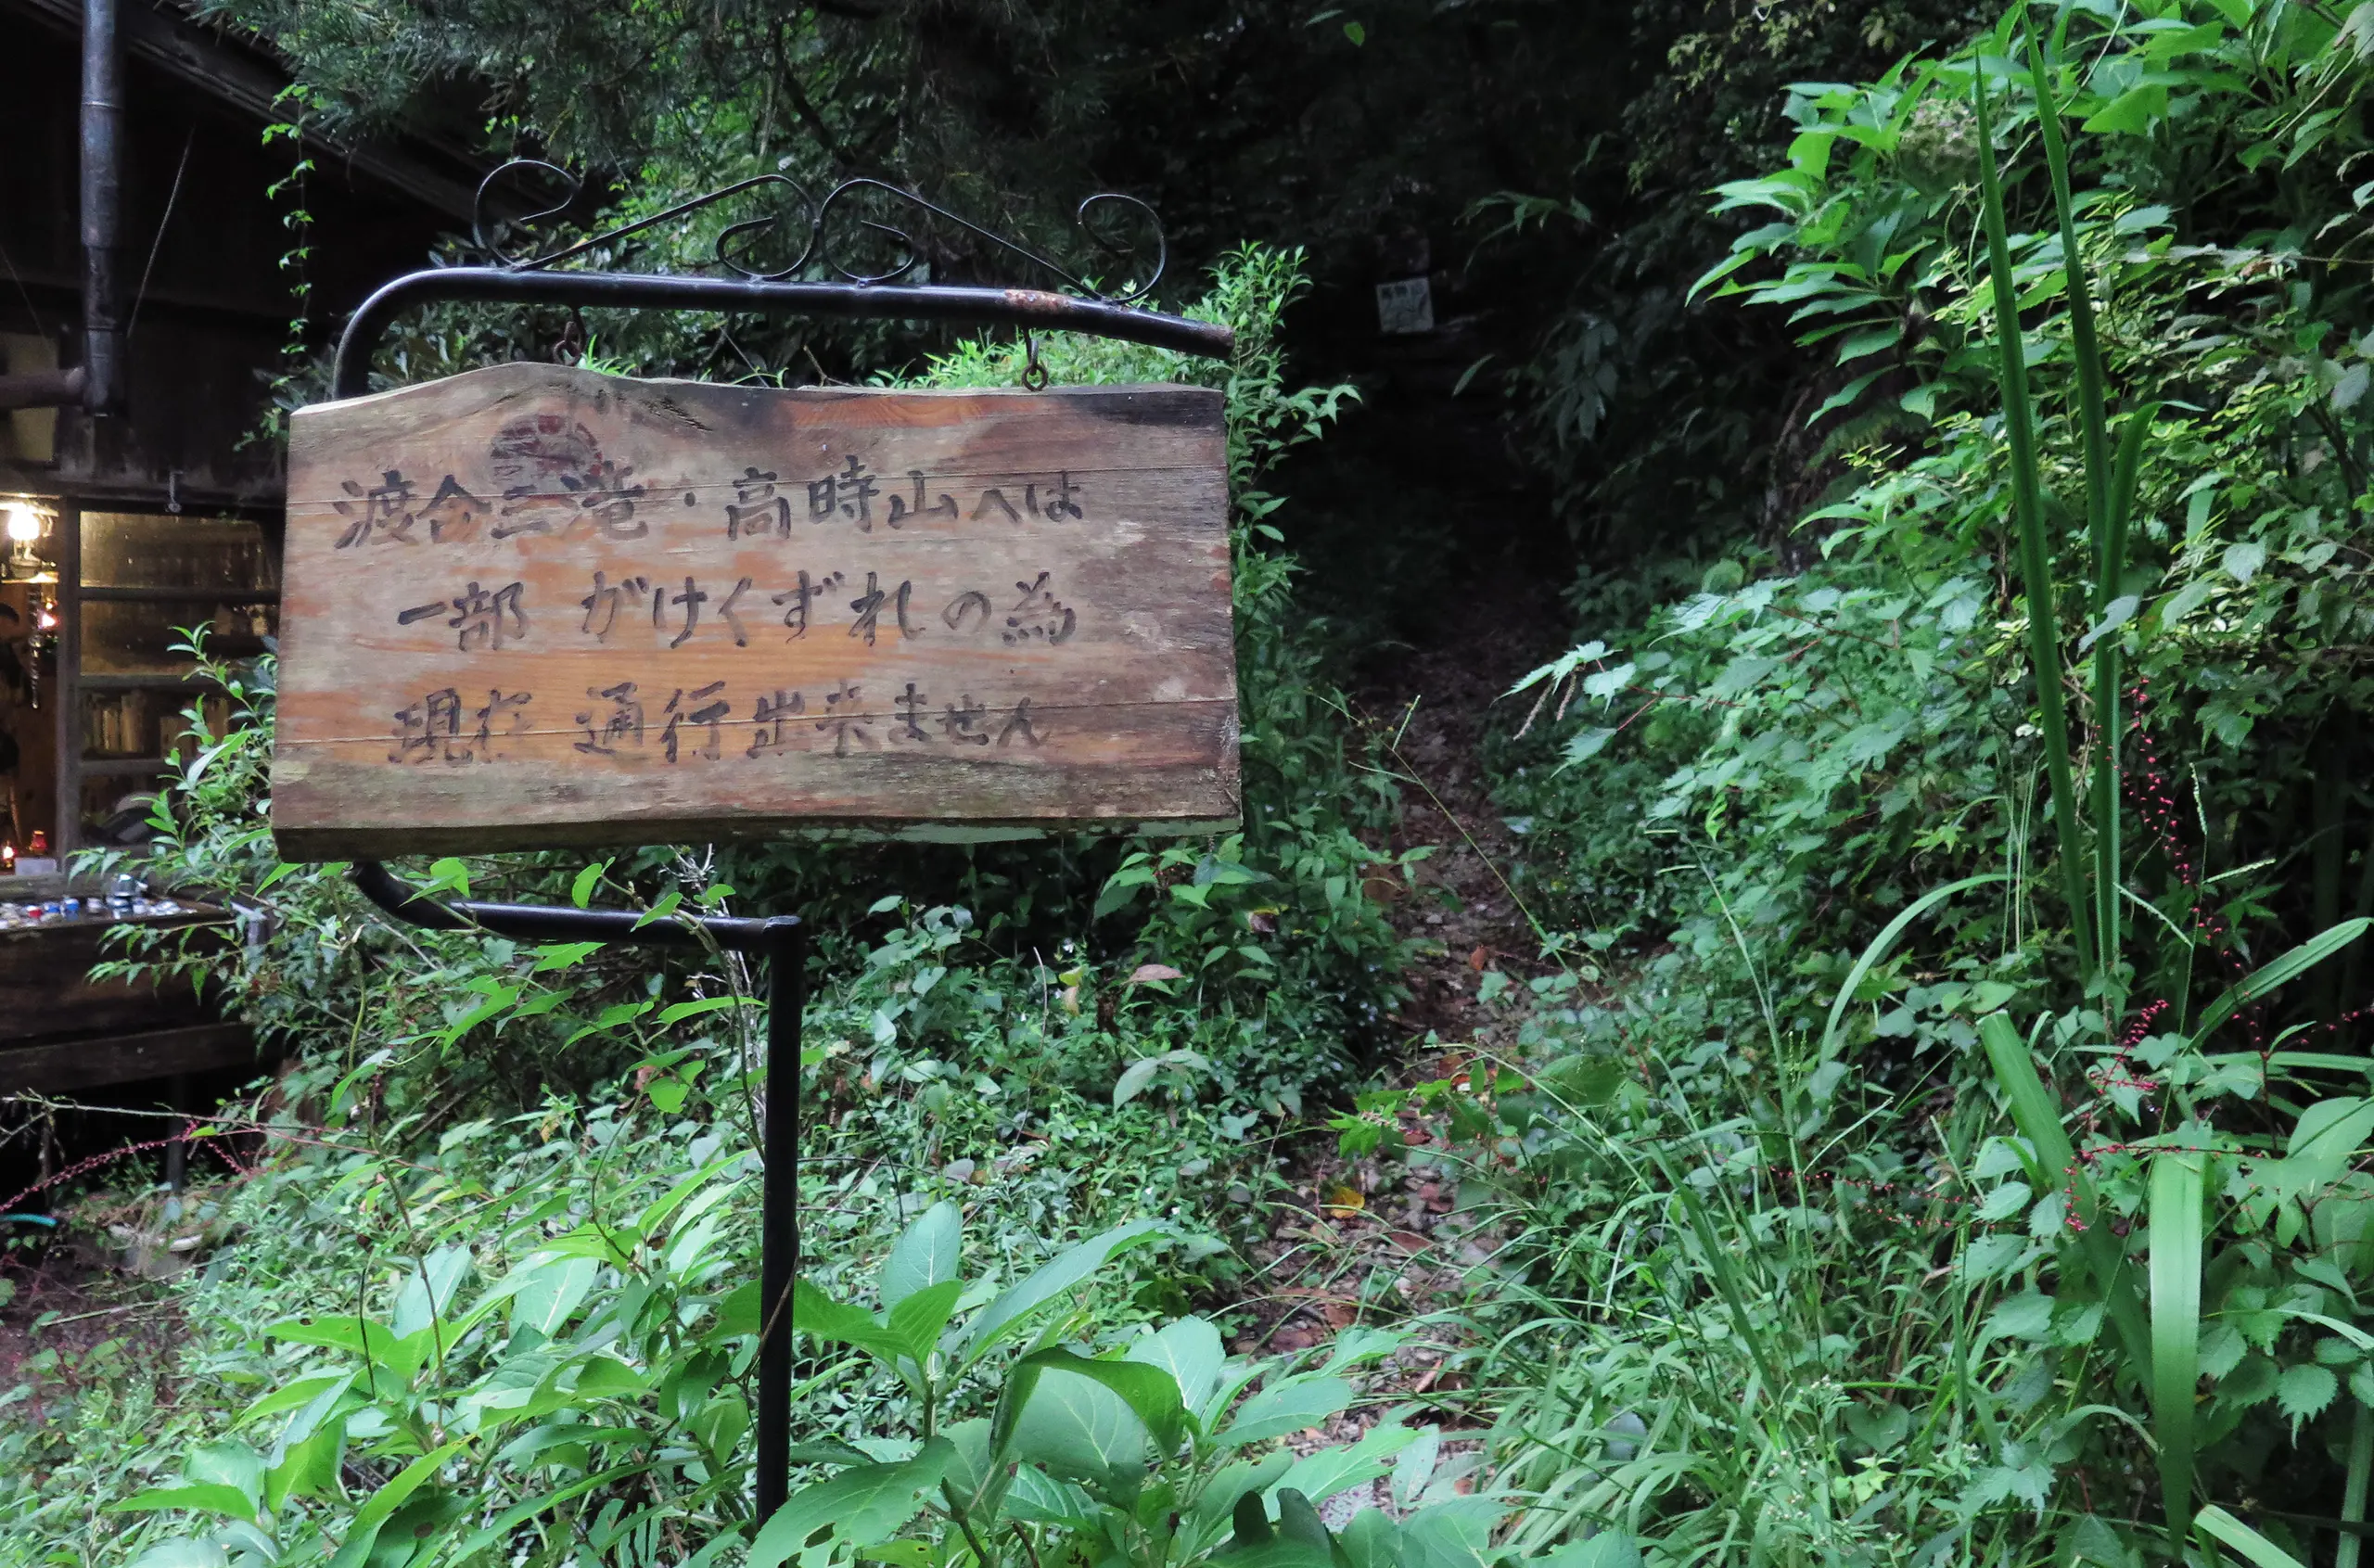 渡合三滝・高時山へは
一部 がけくずれの為
現在 通行出来ません